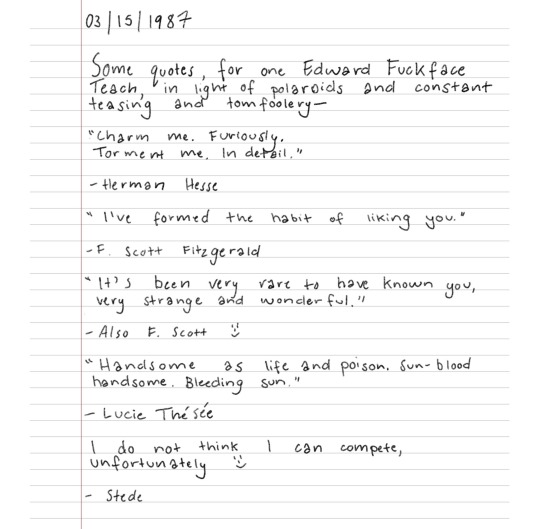 03/15/1987
Some quotes, for one Edward Fuckface
Teach, in light of polaroids and constant
teasing and tomfoolery—
"Charm me. Furiously.
Torment me. In detail."
- Herman Hesse
"I've formed the habit of liking you."
- F. Scott Fitzgerald
"It's been very rare to have known you,
very strange and wonderful."
- Also F. Scott :)
"Handsome as life and poison. Sun-blood
handsome. Bleeding sun."
- Lucie Thésée
I do not think I can compete,
unfortunately :)
- Stede